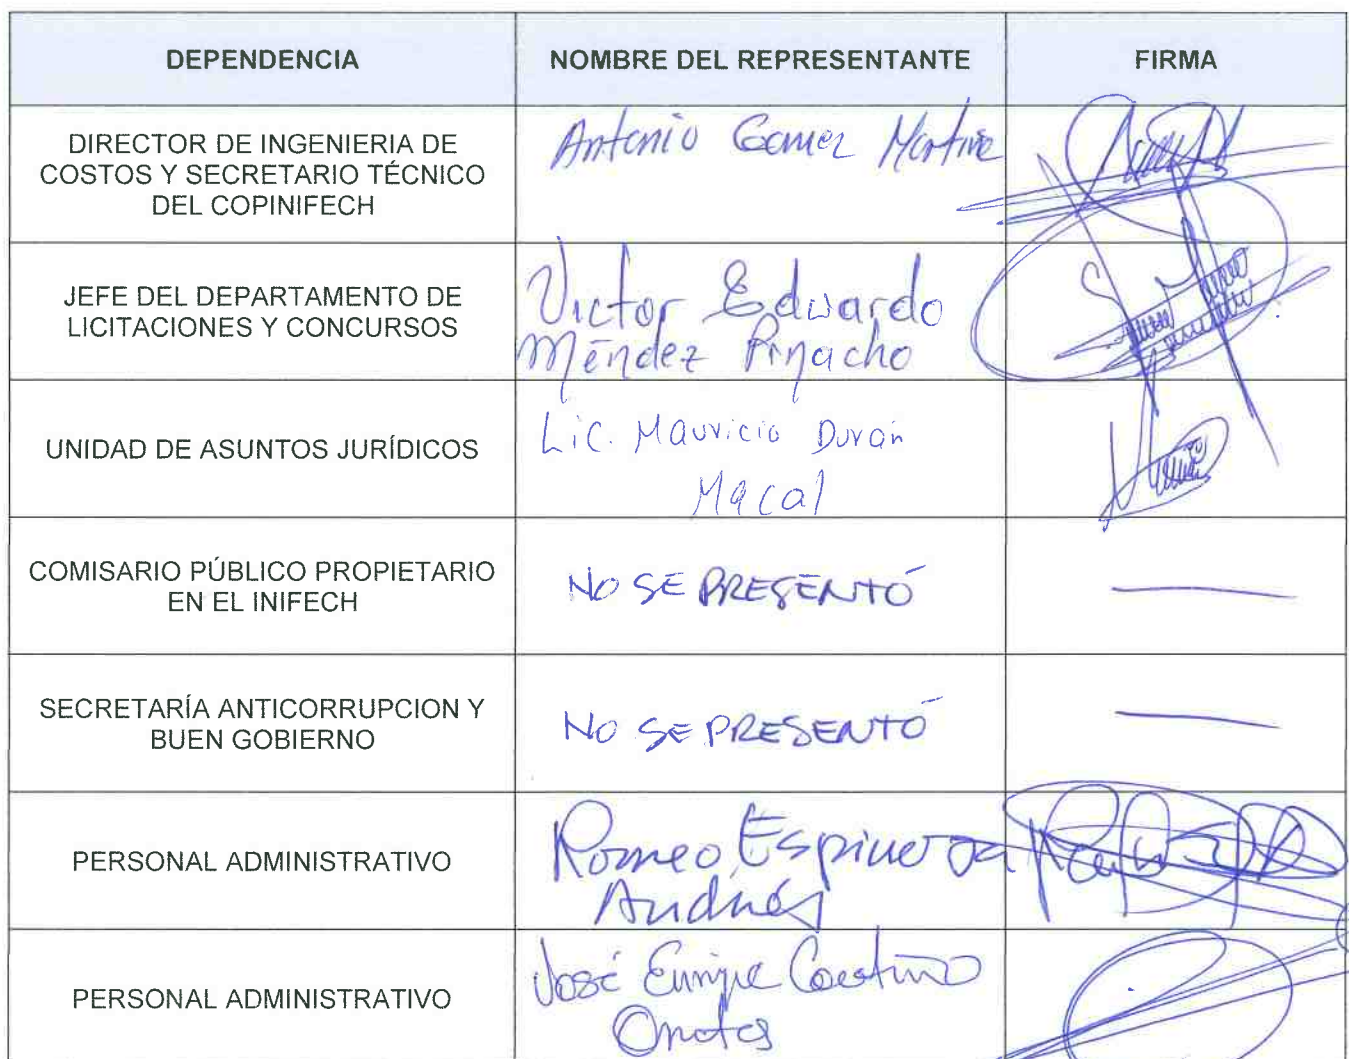 DEPENDENCIA NOMBRE DEL REPRESENTANTE FIRMA
DIRECTOR DE INGENIERIA DE
COSTOS Y SECRETARIO TÉCNICO
DEL COPINIFECH
Antonio Gamez
JEFE DEL DEPARTAMENTO DE
LICITACIONES Y CONCURSOS
Victor Eduardo
Méndez Pinacho
UNIDAD DE ASUNTOS JURÍDICOS
Lic. Mauricio Durán
Macal
COMISARIO PÚBLICO PROPIETARIO
EN EL INIFECH
NO SE PRESENTÓ
SECRETARÍA ANTICORRUPCION Y
BUEN GOBIERNO
NO SE PRESENTÓ
PERSONAL ADMINISTRATIVO
Romeo Espinosa
Andrés
PERSONAL ADMINISTRATIVO
José Enrique